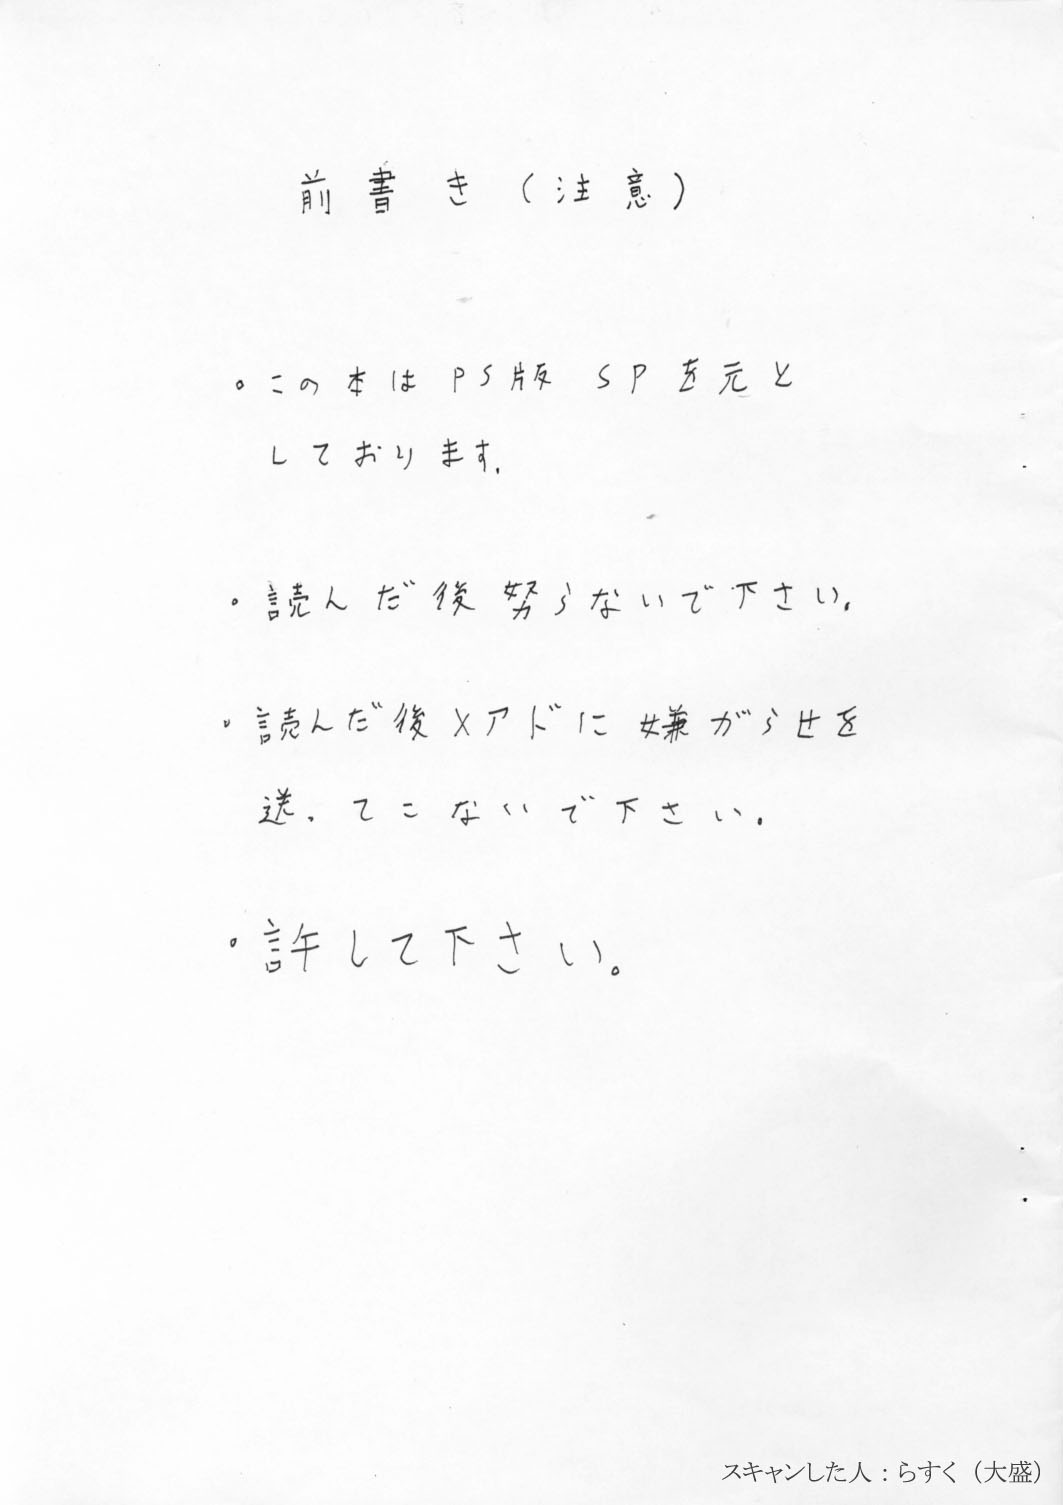 前書き(注意)
・この本はPS版 SPを元と
しております.
・読んだ後努らないで下さい.
・読んだ後メアドに嫌がらせを
送ってこないで下さい.
・許して下さい。
スキャンした人：らすく（大盛）